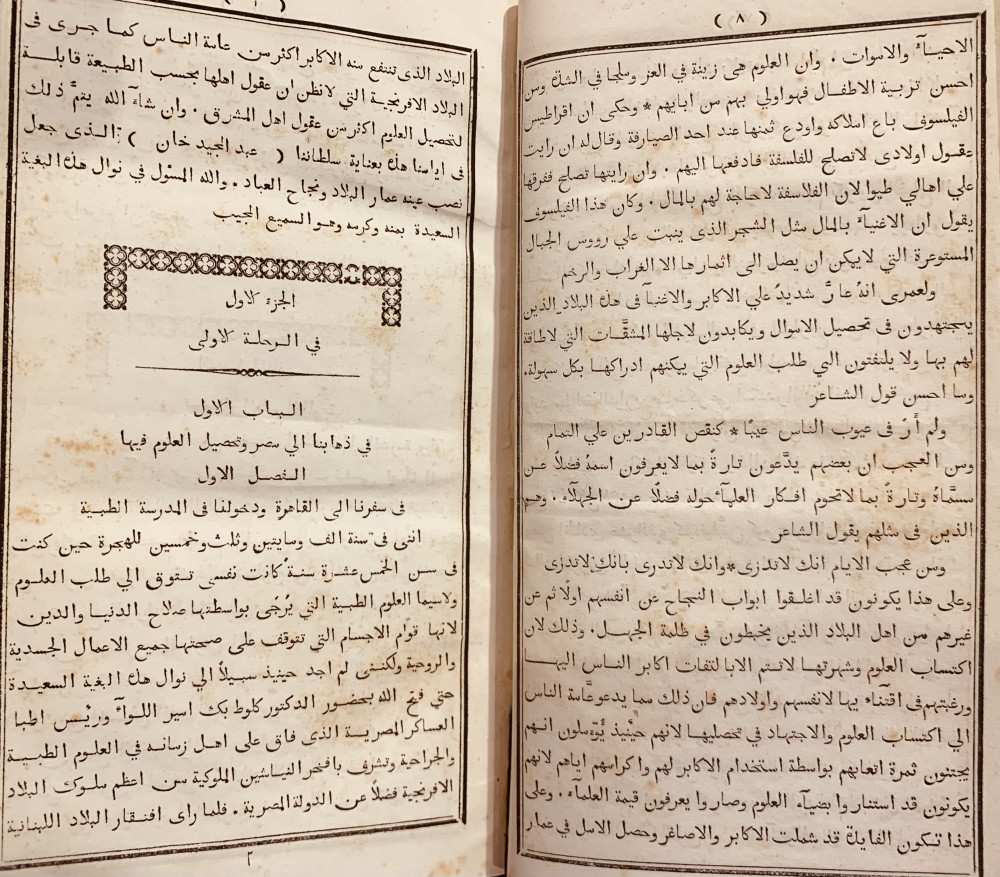 ( ٨ )
الاحيآء والاموات . وان العلوم هى زينة في العز وملجا في الشدّ ومن
احسن تربية الاطفال فهواولي بهم من ابايهم * وحكى ان اقراطيس
الفيلسوف باع املاكه واودع ثمنها عند احد الصيارفة وقال له ان رايت
عقول اولادى لاتصلح للفلسفة فادفعها اليهم . وان رايتها تصلح ففرقها
علي اهالي طيوا لان الفلاسفة لاحاجة لهم بالمال . وكان هذا الفيلسوف
يقول ان الاغنيآء بالمال مثل الشجر الذى ينبت علي رووس الجبال
المستوعرة التي لايمكن ان يصل الى اثمارها الا الغراب والرخم
ولعمرى انهُ عارٌ شديدٌ علي الاكابر والاغنيآ في هذه البلاد الذين
يجتهدون فى تحصيل الاموال ويكابدون لاجلها المشقَّات التي لاطاقة
لهم بها ولا يلتفتون الي طلب العلوم التي يمكنهم ادراكها بكل سهولة .
وما احسن قول الشاعر
ولم أَرَ فى عيوب الناس عيبًا * كنقص القادرين علي التمام
ومن العجب ان بعضهم يدَّعون تارةً بما لايعرفون اسمهُ فضلاً عن
مسمَّاهُ وتارةً بما لاتحوم افكار العلمآء حوله فضلًا عن الجهلآء . وهم
الذين فى مثلهم يقول الشاعر
ومن عجب الايام انك لاتدرى * وانك لاتدرى بانك لاتدرى
وعلى هذا يكونون قد اغلقوا ابواب النجاح عن انفسهم اولًا ثم عن
غيرهم من اهل البلاد الذين يخبطون في ظلمة الجهل . وذلك لان
اكتساب العلوم وشهرتها لاتتم الابالتفات اكابر الناس اليها
ورغبتهم فى اقتنآء يها لانفسهم واولادهم فان ذلك مما يدعوعآمة الناس
الي اكتساب العلوم والاجتهاد في تحصيلها لانهم حينيذ يُؤَملون انهم
يجتنون ثمرة اتعابهم بواسطة استخدام الاكابر لهم واكرامهم اياهم لانهم
يكونون قد استناروا بضيآء العلوم وصاروا يعرفون قيمة العلمآء . وعلى
هذا تكون الفايدة قد شملت الاكابر والاصاغر وحصل الامل في عمار
البلاد الذى تنتفع منه الاكابر اكثر من عامة الناس كما جرى فى
البلاد الافرنجية التي لانظن ان عقول اهلها بحسب الطبيعة قابلة
لتحصيل العلوم اكثر من عقول اهل المشرق . وان شآء الله يتمُّ ذلك
فى ايامنا هذه بعناية سلطاننا ( عبد المجيد خان ) الذى جعل
نصب عينه عمار البلاد ونجاح العباد . والله المسئول في نوال هذه البغية
السعيدة بمنه وكرمه وهو السميع المجيب
الجزء الاول
في الرحلة الاولى
الباب الاول
في ذهابنا الي مصر وتحصيل العلوم فيها
الفصل الاول
فى سفرنا الى القاهرة ودخولنا فى المدرسة الطبية
اننى فى سنة الف ومايتين وثلث وخمسين للهجرة حين كنت
فى سن الخمس عشرة سنة كانت نفسى تتوق الي طلب العلوم
ولاسيما العلوم الطبية التي يُرْجَى بواسطتها صلاح الدنيا والدين
لانها قوام الاجسام التي تتوقف على صحتها جميع الاعمال الجسدية
والروحية ولكننى لم اجد حينيذ سبيلاً الي نوال هذه البغية السعيدة
حتي فتح الله بحضور الدكتور كلوط بك امير اللوآء ورئس اطبا
العساكر المصرية الذى فاق على اهل زمانه في العلوم الطبية
والجراحية وتشرف بافخر النياشين الملوكية من اعظم ملوك البلاد
الافرنجية فضلاً عن الدولة المصرية . فلما راى افتقار البلاد اللبنانية
٢